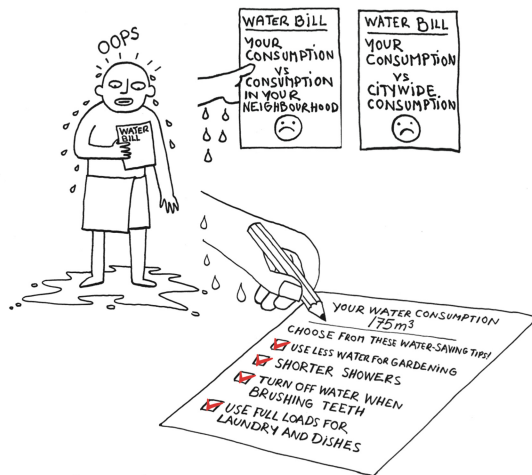 OOPS
WATER
BILL
WATER BILL
YOUR
CONSUMPTION
VS
CONSUMPTION
IN YOUR
NEIGHBOURHOOD
WATER BILL
YOUR
CONSUMPTION
VS
CITYWIDE
CONSUMPTION
YOUR WATER CONSUMPTION
175m³
CHOOSE FROM THESE WATER-SAVING TIPS!
USE LESS WATER FOR GARDENING
SHORTER SHOWERS
TURN OFF WATER WHEN
BRUSHING TEETH
USE FULL LOADS FOR
LAUNDRY AND DISHES